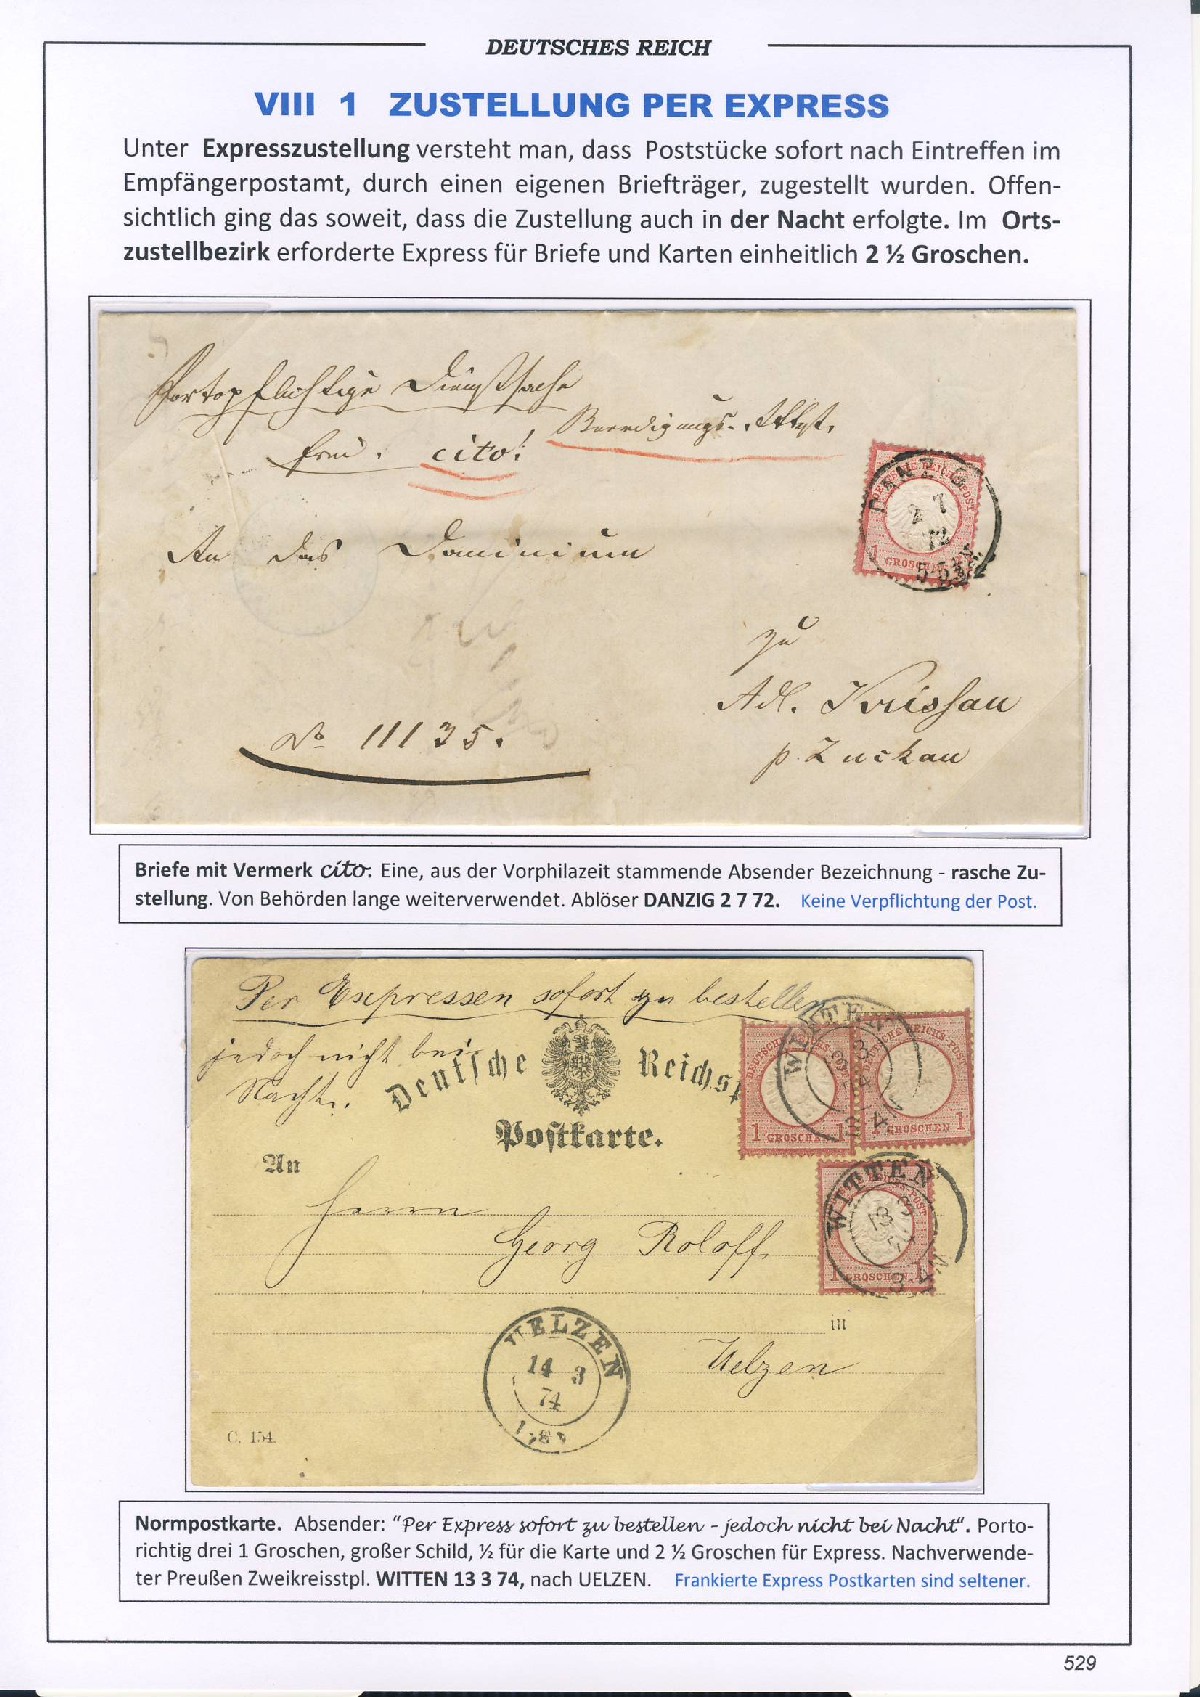 DEUTSCHES REICH
VIII 1 ZUSTELLUNG PER EXPRESS
Unter Expresszustellung versteht man, dass Poststücke sofort nach Eintreffen im
Empfängerpostamt, durch einen eigenen Briefträger, zugestellt wurden. Offen-
sichtlich ging das soweit, dass die Zustellung auch in der Nacht erfolgte. Im Orts-
zustellbezirk erforderte Express für Briefe und Karten einheitlich 2 ½ Groschen.
Portopflichtige Dienstsache
frei. cito!
An das Dominium
zu
Adl. Krissau
p. Zuckau
No 11135.
DANZIG
2 7
72
1 GROSCHEN
Briefe mit Vermerk cito. Eine, aus der Vorphilazeit stammende Absender Bezeichnung - rasche Zu-
stellung. Von Behörden lange weiterverwendet. Ablöser DANZIG 2 7 72. Keine Verpflichtung der Post.
Per Expressen sofort zu bestellen
jedoch nicht bei
Nacht.
Deutsche Reichsp
Postkarte.
1 GROSCHEN 1
1 GROSCHEN 1
WITTEN
An
Herrn
Georg Roloff,
WITTEN
13 3
1 GROSCHEN 1
in
Uelzen
UELZEN
14 3
74
C. 154.
Normpostkarte. Absender: "Per Express sofort zu bestellen – jedoch nicht bei Nacht". Porto-
richtig drei 1 Groschen, großer Schild, ½ für die Karte und 2 ½ Groschen für Express. Nachverwende-
ter Preußen Zweikreisstpl. WITTEN 13 3 74, nach UELZEN. Frankierte Express Postkarten sind seltener.
529